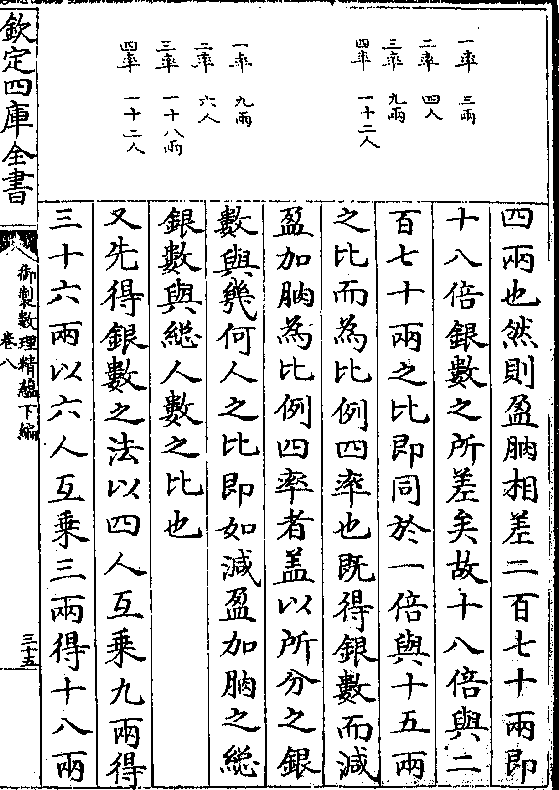 一率　三兩
二率　四人
三率　九兩
四率　一十二人
一率　九兩
二率　六人
三率　一十八兩
四率　一十二人
四兩也然則盈朒相差二百七十兩即
十八倍銀數之所差矣故十八倍與二
百七十兩之比即同於一倍與十五兩
之比而為比例四率也既得銀數而減
盈加朒為比例四率者盖以所分之銀
數與幾何人之比即如減盈加朒之總
銀數與總人數之比也
又先得銀數之法以四人互乘九兩得
三十六兩以六人互乘三兩得十八兩
欽定四庫全書
御製數理精蘊下編
卷八
三十五